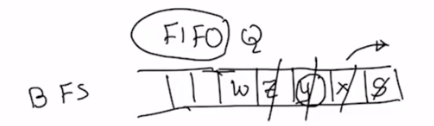 FIFO Q
BFS W Z y x S